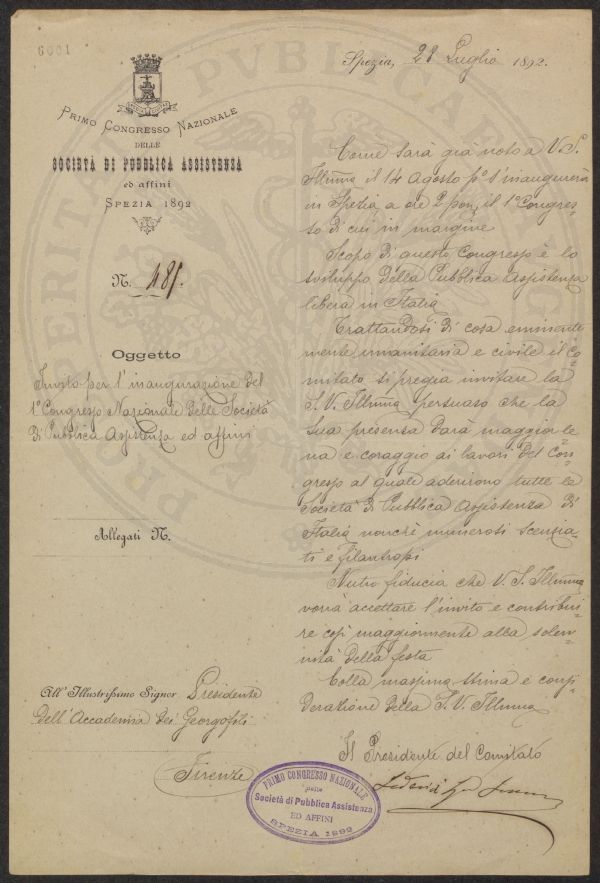 6001
Spezia, 28 Luglio 1892.
PRIMO CONGRESSO NAZIONALE
DELLE
SOCIETÀ DI PUBBLICA ASSISTENZA
ed affini
SPEZIA 1892
N. 485.
Oggetto
Invito per l'inaugurazione del
1° Congresso Nazionale delle Società
di Pubblica Assistenza ed affini
Allegati N.
All'Illustrissimo Signor Presidente
dell'Accademia dei Georgofili
Firenze
Come sarà già noto a V. S.
Ill̃ma il 14 Agosto p° s'inaugurerà
in Spezia a ore 2 pom. il 1° Congres-
so di cui in margine
Scopo di questo Congresso è lo
sviluppo della Pubblica Assistenza
libera in Italia
Trattandosi di cosa eminente
mente umanitaria e civile il Co
mitato si pregia invitare la
S. V. Ill̃ma persuaso che la
sua presenza darà maggior le-
na e coraggio ai lavori del Con-
gresso al quale aderirono tutte le
Società di Pubblica Assistenza di
Italia nonchè numerosi scenzia-
ti e filantropi
Nutro fiducia che V. S. Ill̃ma
vorrà accettare l'invito e contribui-
re così maggiormente alla solen-
nità della festa
Colla massima stima e consi-
derazione della S. V. Ill̃ma
Il Presidente del Comitato
PRIMO CONGRESSO NAZIONALE
delle
Società di Pubblica Assistenza
ED AFFINI
SPEZIA 1892